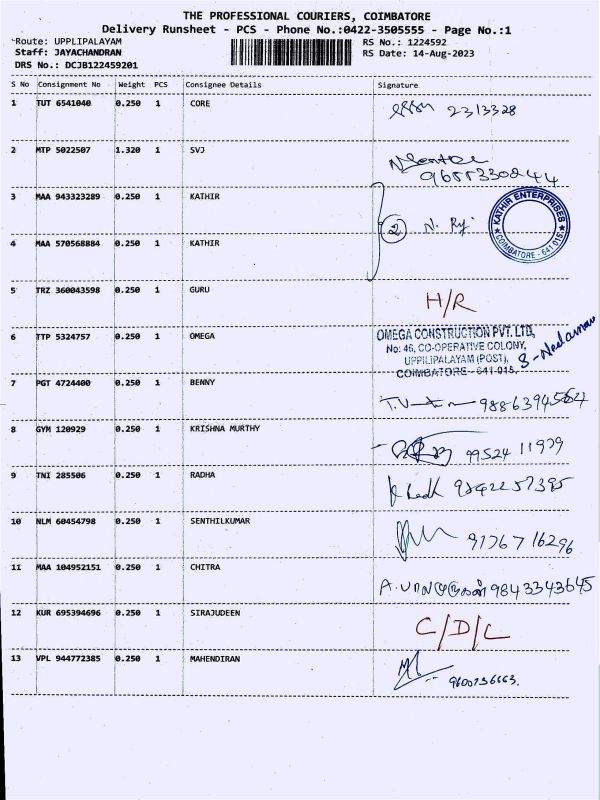 THE PROFESSIONAL COURIERS, COIMBATORE
Delivery Runsheet - PCS - Phone No.:0422-3505555 - Page No.:1
Route: UPPLIPALAYAM RS No.: 1224592
Staff: JAYACHANDRAN RS Date: 14-Aug-2023
DRS No.: DCJB122459201
S No Consignment No Weight PCS Consignee Details Signature
1 TUT 6541040 0.250 1 CORE 2313328
2 MTP 5022507 1.320 1 SVJ
9655330244
3 MAA 943323289 0.250 1 KATHIR
KATHIR ENTERPRISES
COIMBATORE - 641 015.
2
4 MAA 570568884 0.250 1 KATHIR
5 TRZ 360043598 0.250 1 GURU H/R
6 TTP 5324757 0.250 1 OMEGA OMEGA CONSTRUCTION PVT. LTD,
No: 46, CO-OPERATIVE COLONY,
UPPILIPALAYAM (POST),
COIMBATORE - 641 015.
7 PGT 4724400 0.250 1 BENNY
8 GYM 120929 0.250 1 KRISHNA MURTHY 99524 11979
9 TNI 285506 0.250 1 RADHA
10 NLM 60454798 0.250 1 SENTHILKUMAR 9176716296
11 MAA 104952151 0.250 1 CHITRA 9843343645
12 KUR 695394696 0.250 1 SIRAJUDEEN C/D/L
13 VPL 944772385 0.250 1 MAHENDIRAN 9600736663.